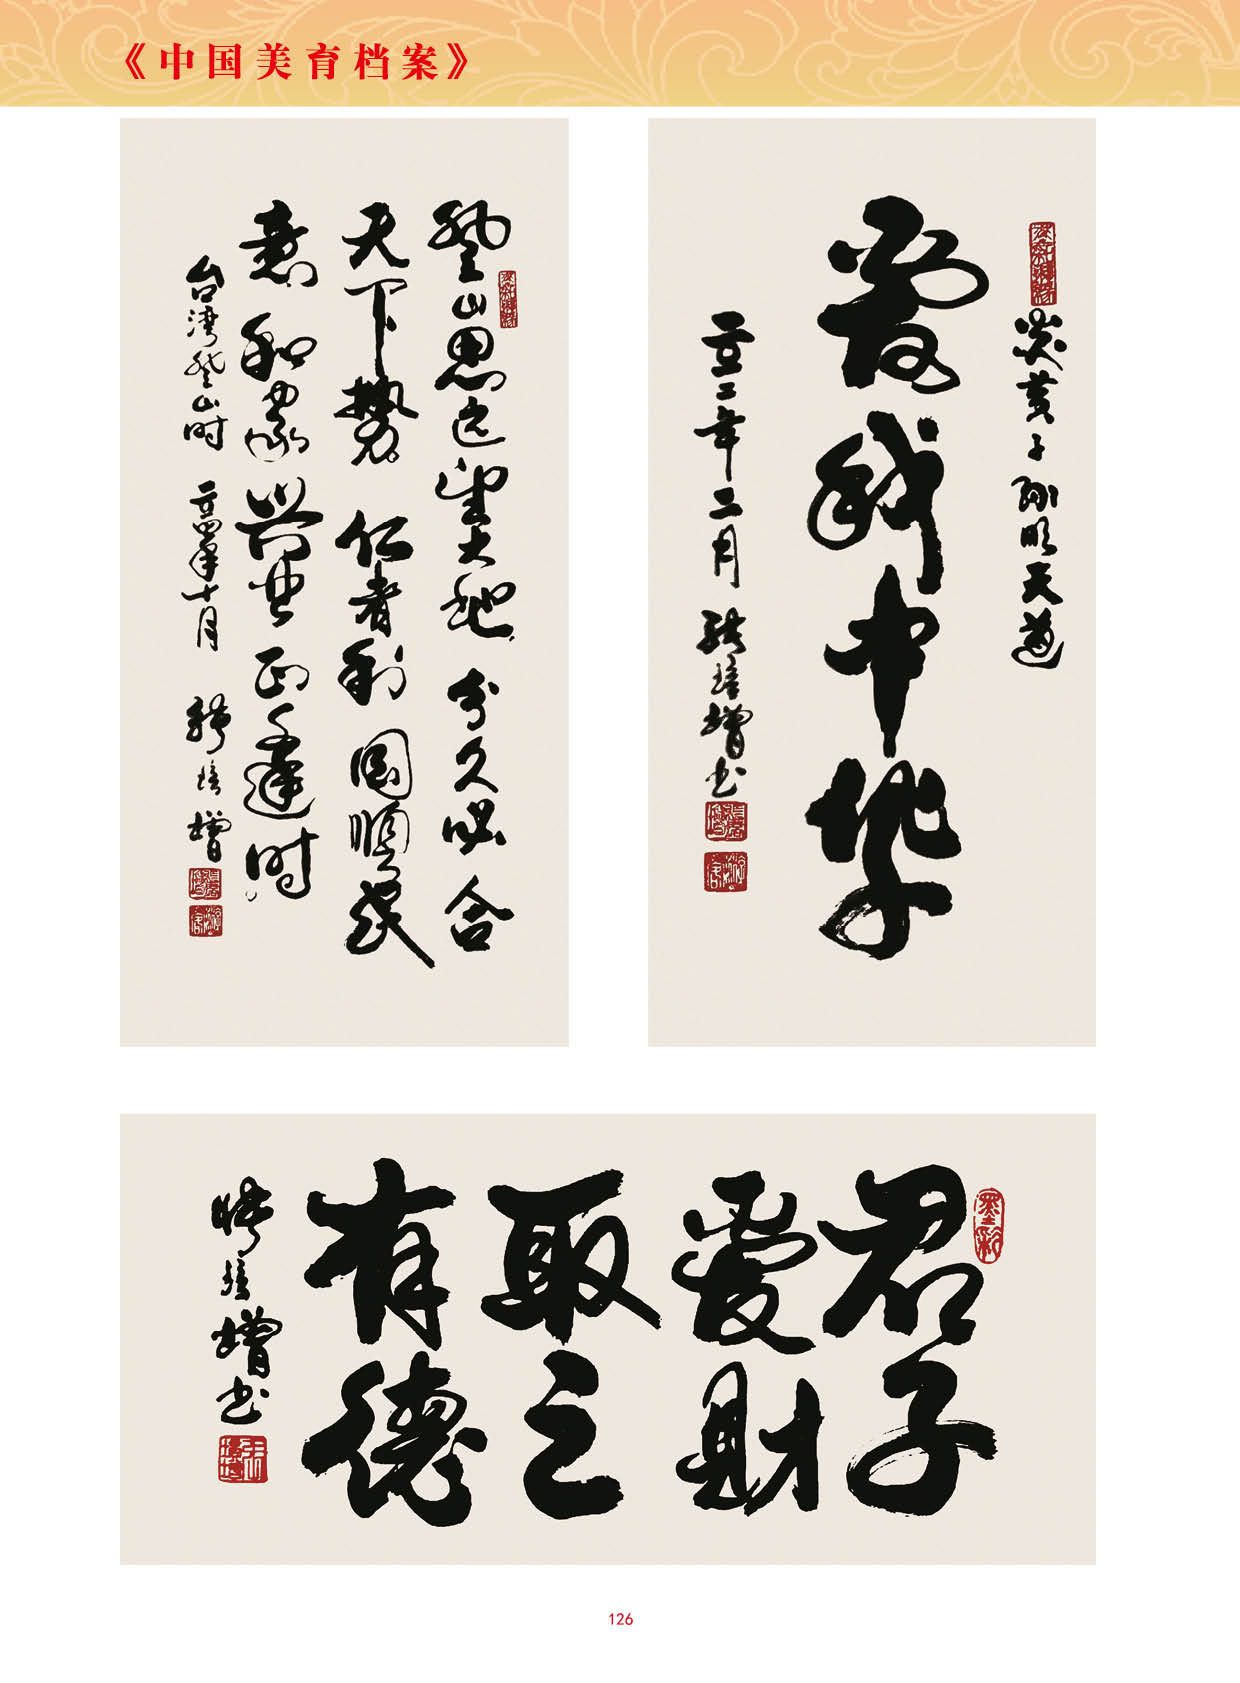 《中国美育档案》
登山思远望大地 分久必合
天下势 仁者利国顺民
意 和家兴 正逢时
台湾登山时 年十月 张培增
炎黄子孙 天道
爱我中华
年二月 张培增书
君子
爱财
取之
有德
张培增书
126